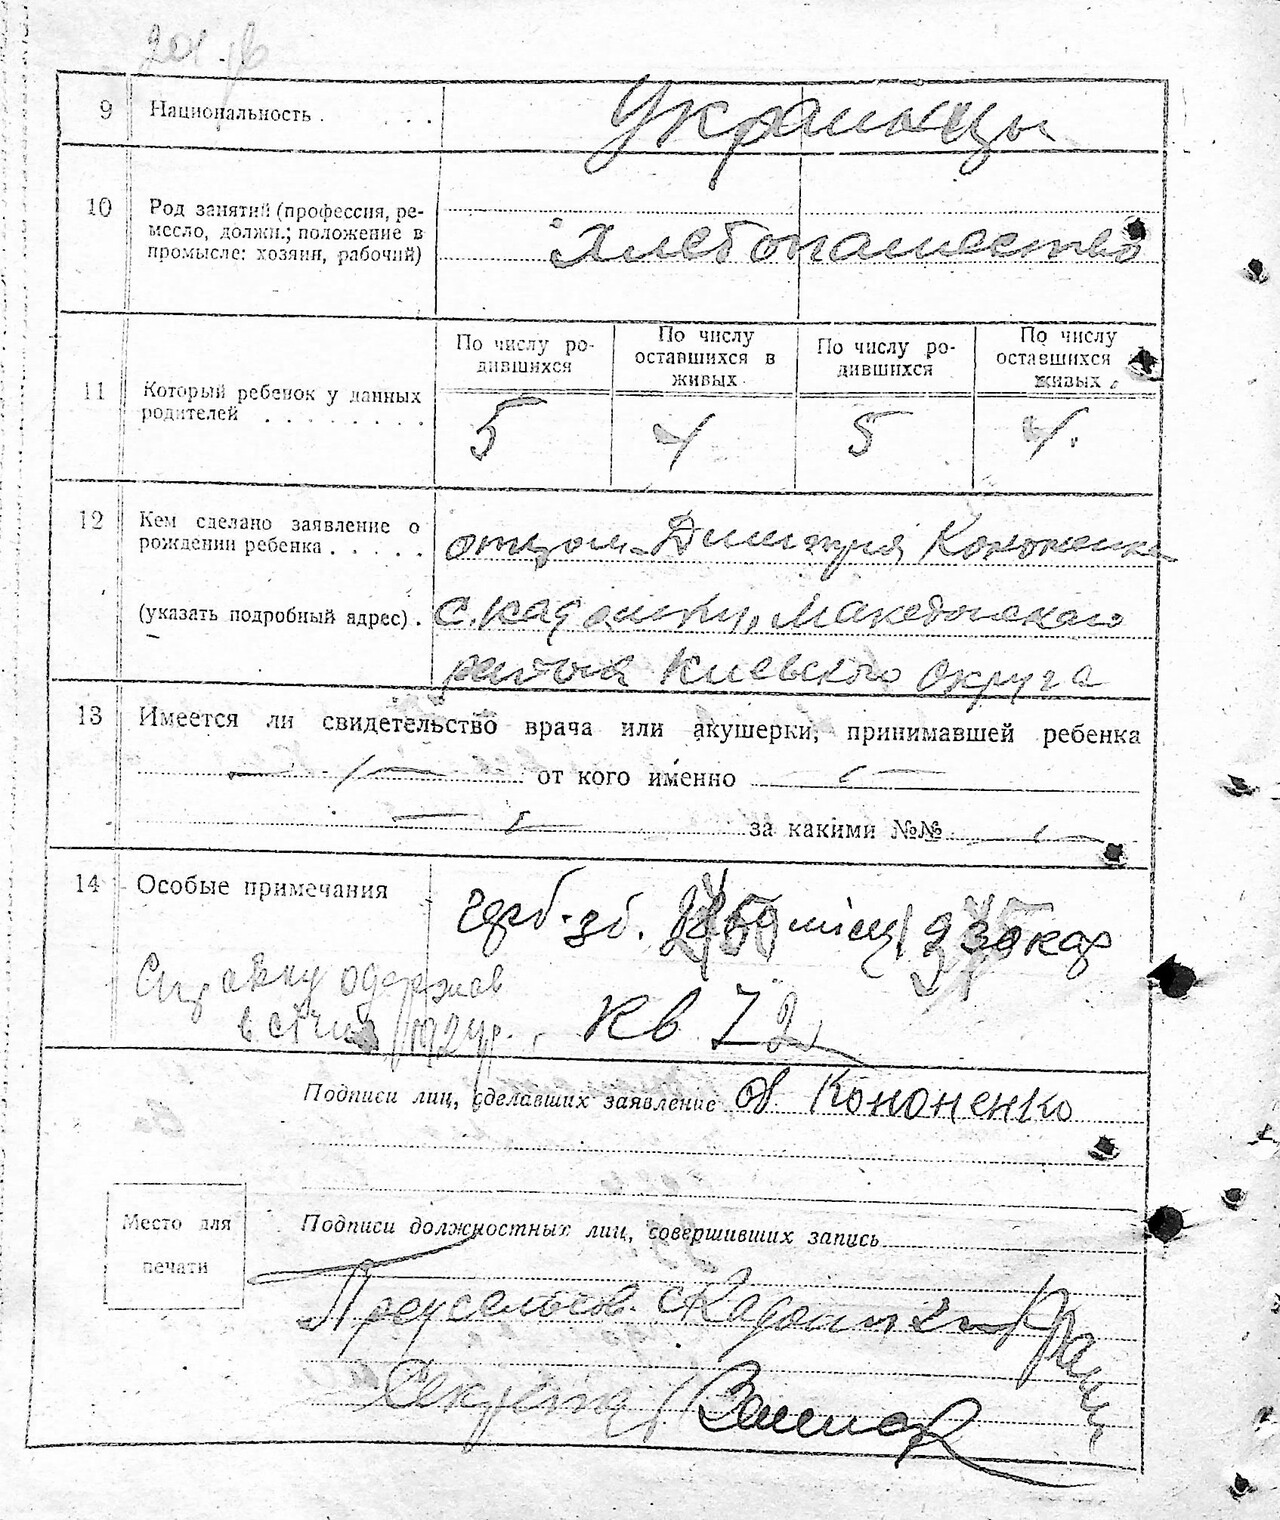 201
9 Национальность . . . . Украинцы
10 Род занятий (профессия, ре-
месло, должн.; положение в
промысле: хозяин, рабочий)
Хлебопашество
11 Который ребенок у данных
родителей . . . . . . . .
По числу ро-
дившихся
По числу
оставшихся в
живых
По числу ро-
дившихся
По числу
оставшихся
живых
5 4 5 4.
12 Кем сделано заявление о
рождении ребенка . . . . .
(указать подробный адрес) .
отцом Дмитрия Кононенка
с. Кадомку, Македонского
района Киевского округа
13 Имеется ли свидетельство врача или акушерки, принимавшей ребенка
от кого именно
за какими №№
14 Особые примечания
герб. зб.
Справку одержав
в січні 1924 р.
кв 72
Подписи лиц, сделавших заявление Кононенко
Место для
печати
Подписи должностных лиц, совершивших запись
Секретар